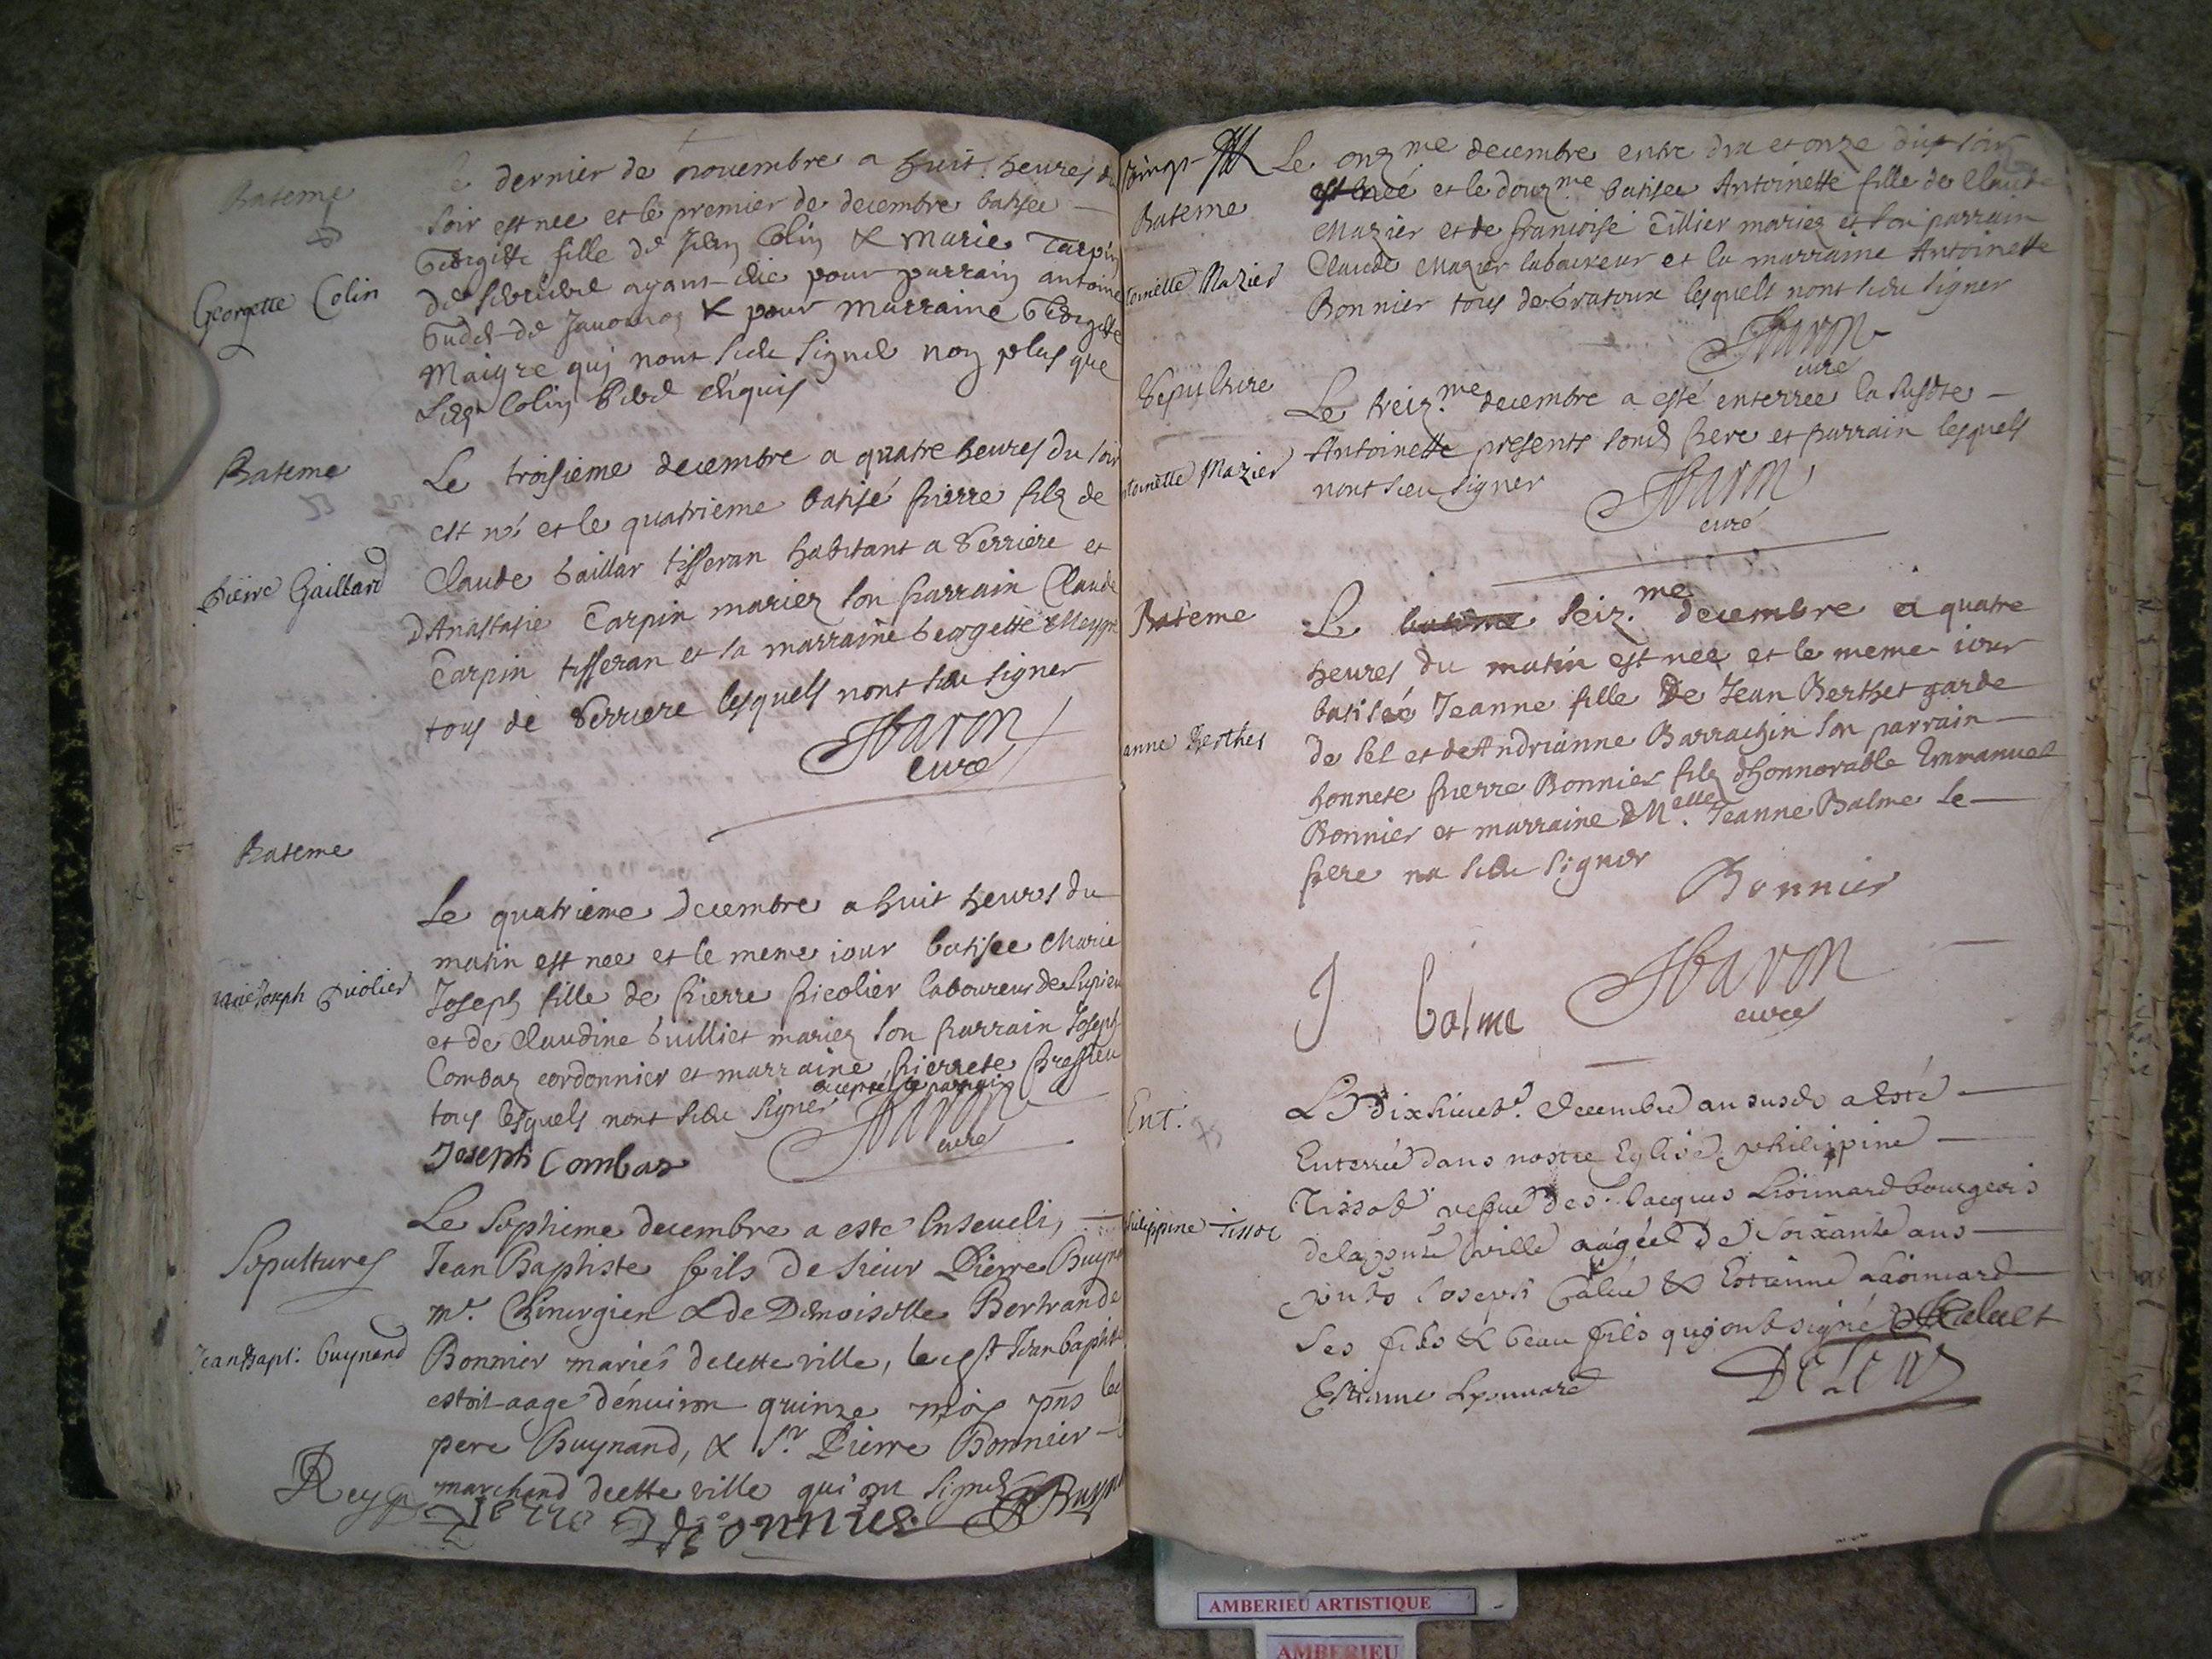 Bateme
Georgette Colin
le dernier de novembre a huit heures du
soir est nee et le premier de decembre batisée
Georgette fille de Jean Colin & Marie Tarpin
de ayant elté pour parrain antoine
& pour marraine Georgette
Maigre qui nont sceu signer non plus que
Colin enquis
Bateme
Pierre Gaillard
Le troisieme decembre a quatre heures du soir
est né et le quatrieme batisé pierre filz de
Claude Gaillar tisseran habitant a Verriere et
dAnastasie Tarpin mariez son parrain Claude
Tarpin tisseran et sa marraine Georgette Meygre
tous de Verriere lesquels nont sceu signer
JBaron
curé
Bateme
Marie Joseph Picolier
Le quatrieme decembre a huit heures du
matin est nee et le meme iour batisee Marie
Joseph fille de pierre picolier laboureur de
et de Claudine Guilliet mariez son parrain Joseph
Combaz cordonnier et marraine pierrete pressieu
tous lesquels nont sceu signer excepté le parrain
JBaron
curé
Joseph Combaz
Sepultures
Jean Bapt: Buynand
Le septieme decembre a esté Enseveli,
Jean Baptiste fils de sieur Pierre Buynand
mr. Chirurgien & de Demoiselle Bertrande
Bonnier mariés de cette ville, le Jean baptiste
estoit aagé d'environ quinze mois pnts les
pere Buynand, & Sr. Pierre Bonnier
marchand de cette ville qui ont signé Buynand
Rey
Pierre Bonnier
Bateme
Antoinette Mazier
Le onzme decembre entre dix et onze du soir
est née et le douzme batisee Antoinette fille de Claude
Mazier et de francoise Tillier mariez et son parrain
Claude Mazier laboureur et la marraine Antoinette
Bonnier tous de bratoux lesquels nont sceu signer
JBaron
curé
Sepulture
Antoinette Mazier
Le treizme decembre a esté enterree la susdte
Antoinette presents sond pere et parrain lesquels
nont sceu signer
JBaron
curé
Bateme
Jeanne Berthet
Le bateme seizme decembre a quatre
heures du matin est nee et le meme iour
batisée Jeanne fille de Jean Berthet garde
de sel et de Andrianne Barrachin son parrain
honnete pierre Bonnier filz dhonnorable Emmanuel
Bonnier et marraine Melle. Jeanne Balme le
pere na sceu signer
Bonnier
J balme
JBaron
curé
Ent:
Philippine Tissot
Le dixhuict. decembre an susdt a Esté
Enterrée dans nostre Eglise philippine
Tissot vefve de s. Jacques Lionnard bourgeois
de la pnte ville aagée de soixante ans
pnts Joseph Calué & Estienne Lionnard
ses fils & beau fils qui ont signé Caluet
Estienne Lyonnard
AMBERIEU ARTISTIQUE
AMBERIEU